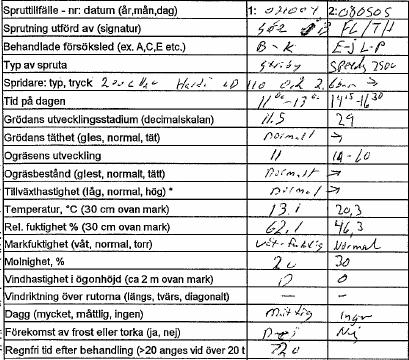 Spruttillfälle - nr: datum (år,mån,dag) 1: 2: 080505
Sprutning utförd av (signatur) FL/TH
Behandlade försöksled (ex. A,C,E etc.) B - K E-J L-P
Typ av spruta
Spridare: typ, tryck Hardi LD 110
Tid på dagen 11 00 - 13 0. 14 15 - 16 30
Grödans utvecklingsstadium (decimalskalan) 11.5 29
Grödans täthet (gles, normal, tät) Normalt →
Ogräsens utveckling 11 14-60
Ogräsbestånd (glest, normalt, tätt) Normalt →
Tillväxthastighet (låg, normal, hög) * Normal →
Temperatur, °C (30 cm ovan mark) 13.1 20,3
Rel. fuktighet % (30 cm ovan mark) 62,1 46,3
Markfuktighet (våt, normal, torr) Normal
Molnighet, % 20 30
Vindhastighet i ögonhöjd (ca 2 m ovan mark) 0
Vindriktning över rutorna (längs, tvärs, diagonalt) — —
Dagg (mycket, måttlig, ingen) Måttlig Ingen
Förekomst av frost eller torka (ja, nej) Nej Nej
Regnfri tid efter behandling (>20 anges vid över 20 t